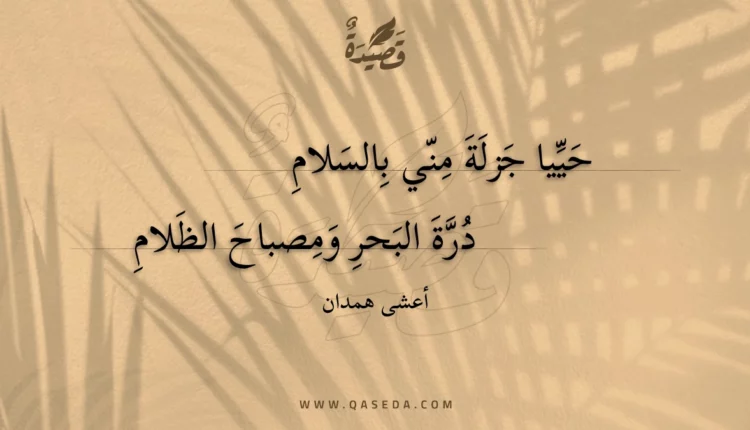 قَصِيْدَةٌ
حَيِّيا جَزلَةَ مِنّي بِالسَلامِ
دُرَّةَ البَحرِ وَمِصباحَ الظَلامِ
أعشى همدان
WWW.QASEDA.COM